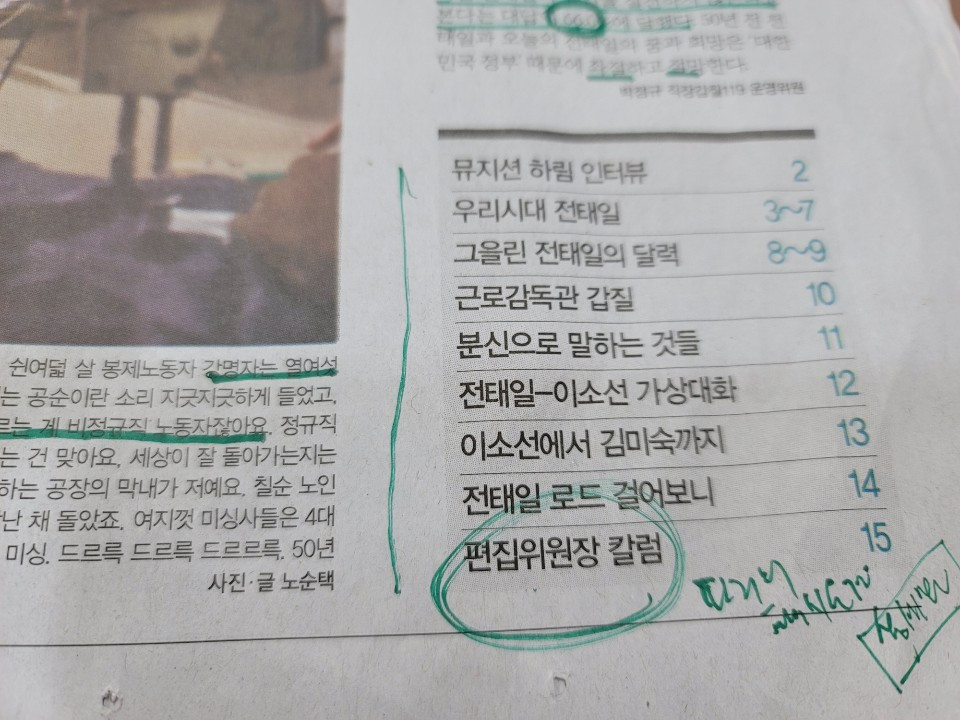 태일과 오늘의 전태일의 꿈과 희망은 '대한
민국 정부' 때문에 좌절하고 절망한다.
박점규 직장갑질119 운영위원
뮤지션 하림 인터뷰 2
우리시대 전태일 3~7
그을린 전태일의 달력 8~9
근로감독관 갑질 10
분신으로 말하는 것들 11
전태일-이소선 가상대화 12
이소선에서 김미숙까지 13
전태일 로드 걸어보니 14
편집위원장 칼럼 15
쉰여덟 살 봉제노동자 강명자는 열여섯
는 공순이란 소리 지긋지긋하게 들었고,
르는 게 비정규직 노동자잖아요. 정규직
는 건 맞아요. 세상이 잘 돌아가는지는
하는 공장의 막내가 저예요. 칠순 노인
난 채 돌았죠. 여지껏 미싱사들은 4대
미싱. 드르륵 드르륵 드르르륵. 50년
사진·글 노순택